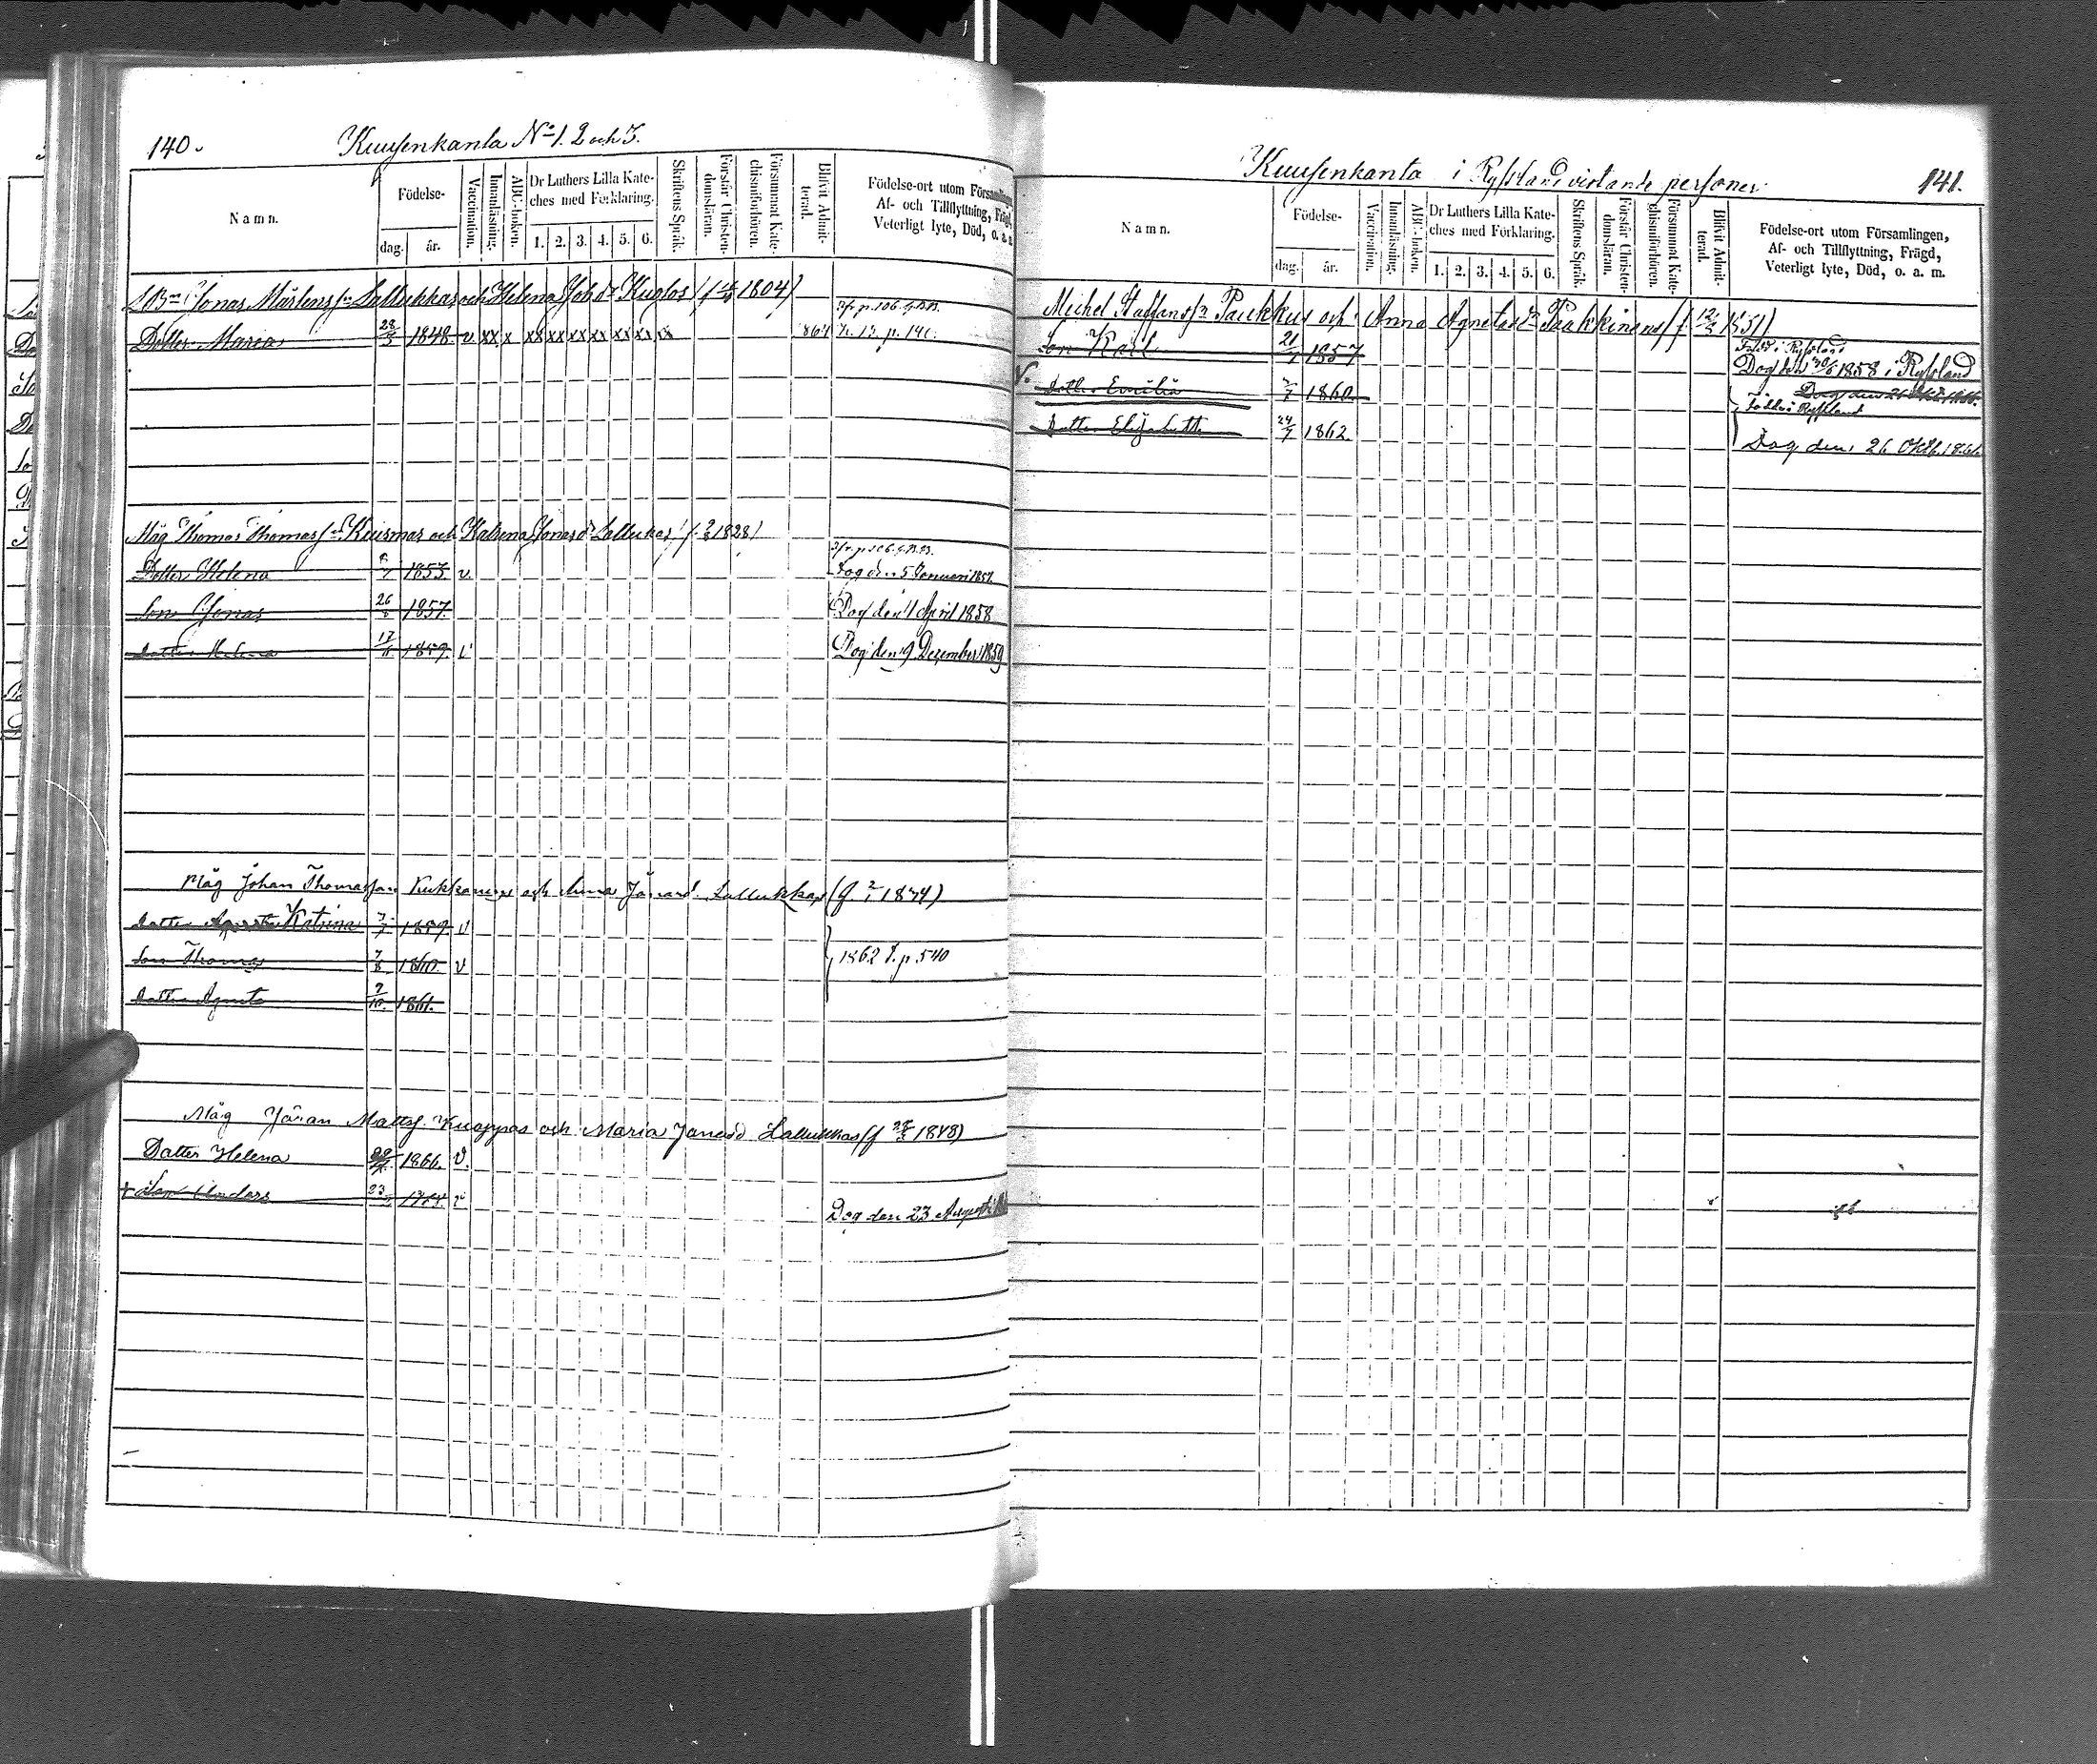 140.
Kuusenkanta No 1. 2 och 3.
Namn.
Födelse-
dag. år.
Vaccination.
Innanläsning.
ABC-boken.
Dr Luthers Lilla Kate-
ches med Förklaring.
1. 2. 3. 4. 5. 6.
Skriftens Språk.
Förstår Christen-
domsläran.
Försummat Kate-
chismiförhören.
Blifvit Admit-
terad.
Födelse-ort utom Församlingen,
Af- och Tillflyttning, Frägd,
Veterligt lyte, Död, o. a. m.
Jonas Mårtenss:n Lallukkas och Helena Joh:dr Kuglas 1804)
Dotter Maria 28/3 1848 v. xx x xx xx xx xx xx xx xx
Måg Thomas Thomas s:n Kuismas och Katrina Jonasd:r Lallukas 1828)
Dotter Helena 1853. v. Dog den 5 Januari 1857
Son Jonas 26 1857. Dog den 1 April 1858
Dotter Helena 17 1859. v Dog den 9 December 1859
Måg Johan Thomasson Kukkoninen och Anna Jonasd. Lallukkas (f 2/1 1834)
Dotter Katrina 1859. v
Son Thomas 1860. v 1862 T. p 540
Dotter Agneta 9/10. 1861.
Måg Jöran Matts. Kuappas och Maria Jonasd Lallukkas (f 28/3 1848)
Dotter Helena 1866. v.
+ Son Anders 23 v Dog den 23 Augusti
141.
Kuusenkanta i Ryssland vistande personer.
Namn.
Födelse-
dag. år.
Vaccination.
Innanläsning.
ABC-boken.
Dr Luthers Lilla Kate-
ches med Förklaring.
1. 2. 3. 4. 5. 6.
Skriftens Språk.
Förstår Christen-
domsläran.
Försummat Kate-
chismiförhören.
Blifvit Admit-
terad.
Födelse-ort utom Församlingen,
Af- och Tillflyttning, Frägd,
Veterligt lyte, Död, o. a. m.
Michel Staffans s:n Paukkus och Anna Agneta d:r Paakkinens (f. 12
Son Karl 21/1 1857 Född i Ryssland
Dog den 30/6 1858 i Ryssland
Dotter Emilia 1860
Födda i Ryssland
Dotter Elisabeth 24/7 1862. Dog den 26 Oktb. 1866